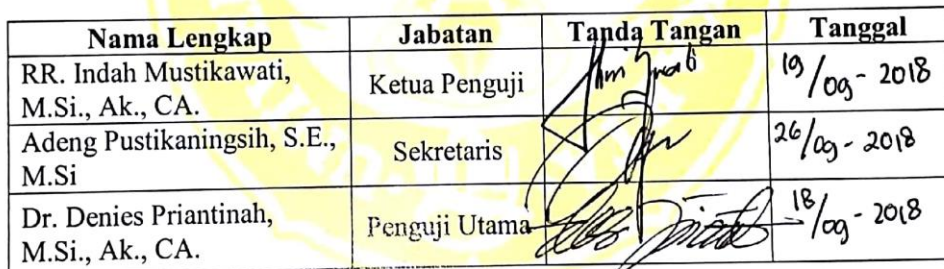 Nama Lengkap Jabatan Tanda Tangan Tanggal
RR. Indah Mustikawati,
M.Si., Ak., CA.
Ketua Penguji
19/09 - 2018
Adeng Pustikaningsih, S.E.,
M.Si
Sekretaris
26/09 - 2018
Dr. Denies Priantinah,
M.Si., Ak., CA.
Penguji Utama
18/09 - 2018